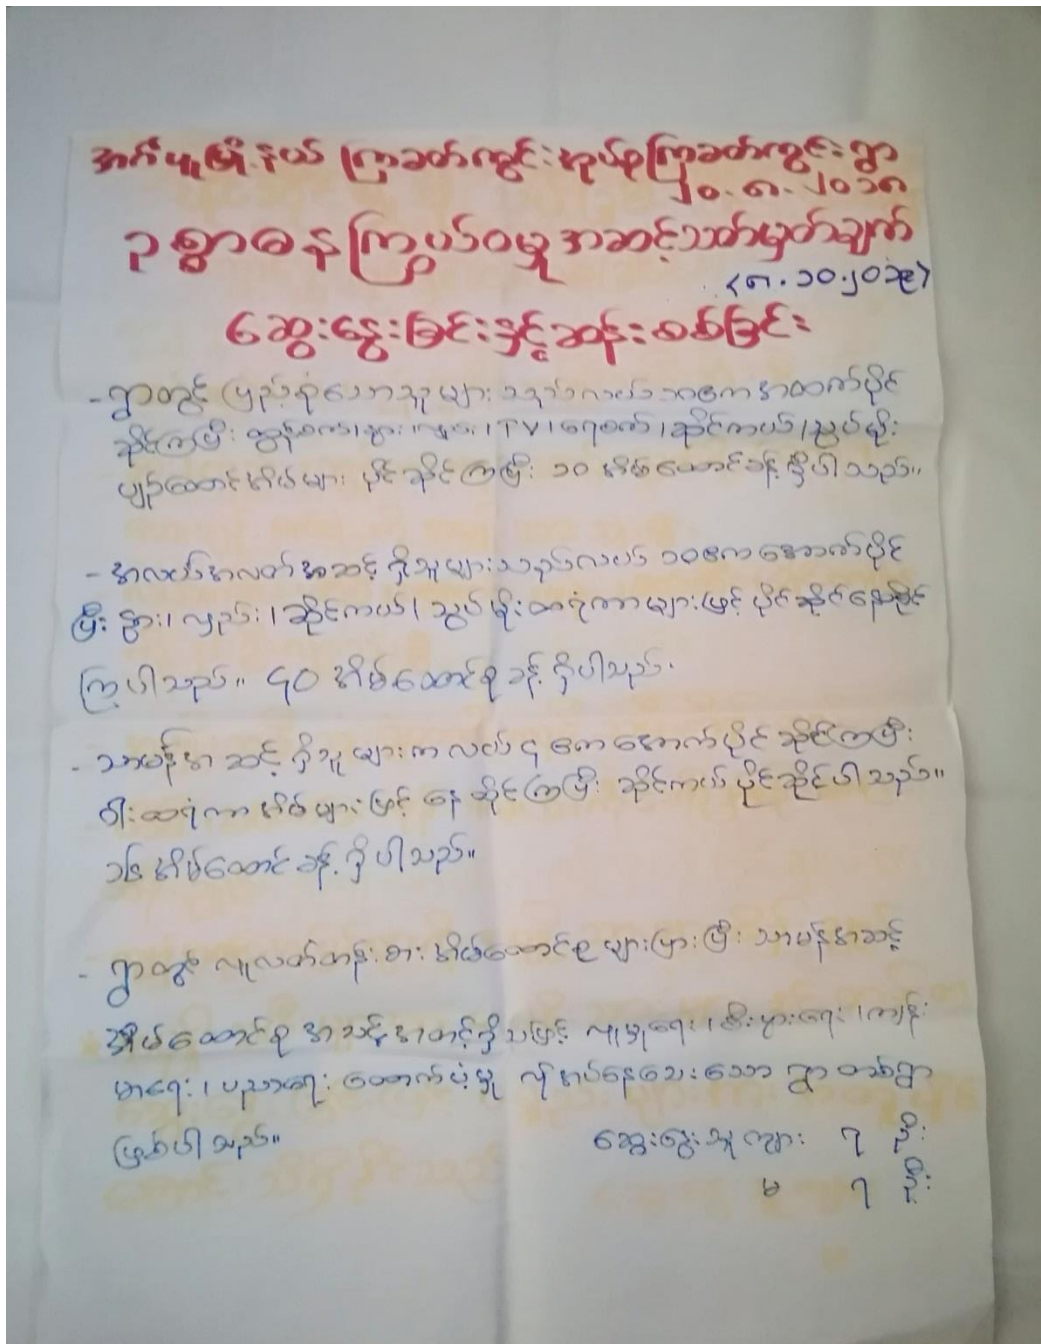 အင်္ဂပူမြို့နယ် ကြခတ်ကွင်းအုပ်စုကြခတ်ကွင်းရွာ
၂၀.၈.၂၀၁၈
ဥစ္စာဓနကြွယ်ဝမှုအဆင့်သတ်မှတ်ချက်
ဆွေးနွေးခြင်းနှင့်ဆန်းစစ်ခြင်း
- ရွာတွင် ပြည့်စုံသောသူများသည်လယ် ၁၀ဧကအထက်ပိုင်
ဆိုင်ကြပြီး ထွန်စက်၊နွား၊လှည်း၊TV၊ရေစက်၊ဆိုင်ကယ်၊သွပ်မိုး
ပျဉ်ထောင်အိမ်များ ပိုင်ဆိုင်ကြပြီး ၁၀ အိမ်ထောင်ခန့်ရှိပါသည်။
- အလယ်အလတ်အဆင့်ရှိသူများသည်လယ် ၁၀ဧကအောက်ပိုင်
ပြီး နွား၊ လှည်း၊ ဆိုင်ကယ်၊ သွပ်မိုးထရံကာများဖြင့် ပိုင်ဆိုင်နေထိုင်
ကြပါသည်။ ၄၀ အိမ်ထောင်စုခန့်ရှိပါသည်။
- သာမန်အဆင့်ရှိသူများက လယ် ၄ ဧကအောက်ပိုင်ဆိုင်ကြပြီး
ဝါးထရံကာအိမ်များဖြင့် နေထိုင်ကြပြီး ဆိုင်ကယ်ပိုင်ဆိုင်ပါသည်။
အိမ်ထောင်ခန့်ရှိပါသည်။
- ရွာတွင် လူလတ်တန်းစား အိမ်ထောင်စုများများပြီး သာမန်အဆင့်
အိမ်ထောင်စု အသင့်အတင့်ရှိသဖြင့် လူမှုရေး၊စီးပွားရေး၊ကျန်း
မာရေး၊ပညာရေး ထောက်ပံ့မှု လိုအပ်နေသေးသော ရွာတစ်ရွာ
ဖြစ်ပါသည်။ ဆွေးနွေးသူ ကျား ၇ ဦး
မ ၇ ဦး